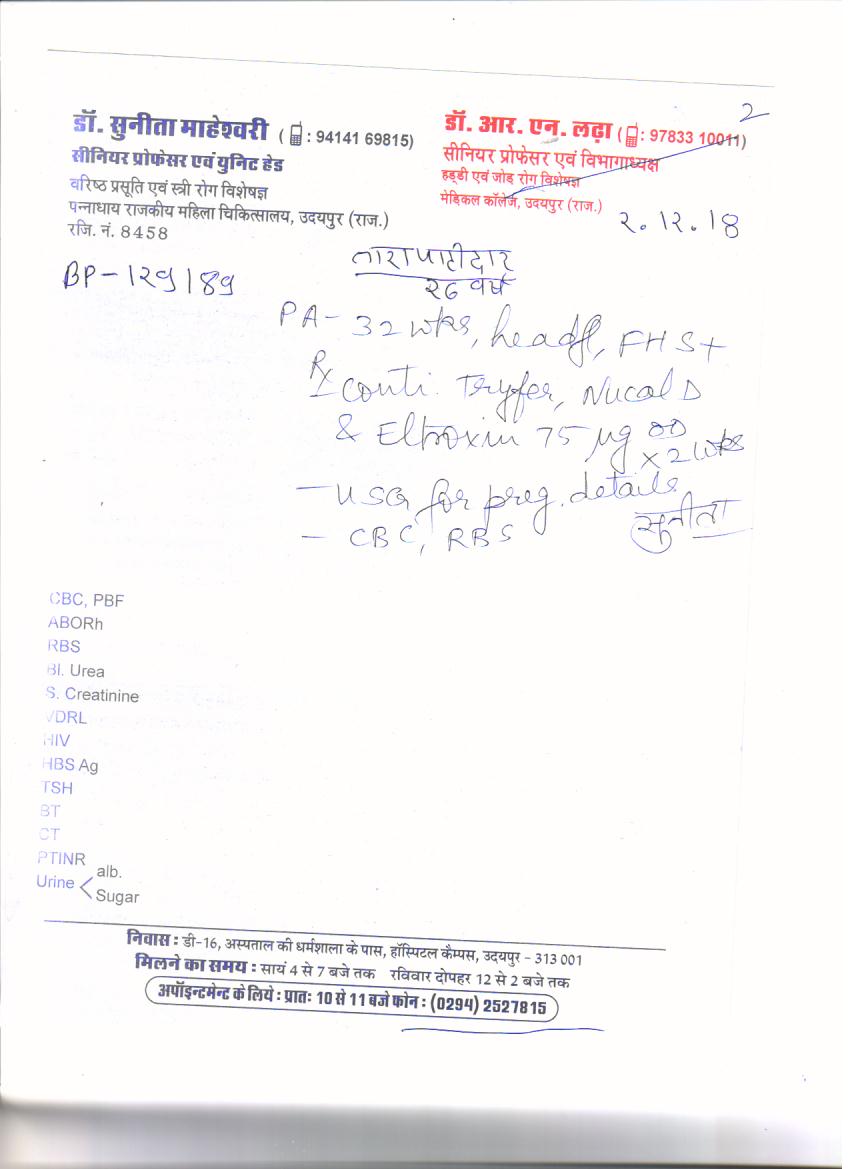 2
डॉ. सुनीता माहेश्वरी ( : 94141 69815)
सीनियर प्रोफेसर एवं युनिट हेड
वरिष्ठ प्रसूति एवं स्त्री रोग विशेषज्ञ
पन्नाधाय राजकीय महिला चिकित्सालय, उदयपुर (राज.)
रजि. नं. 8458
डॉ. आर. एन. लढ़ा ( : 97833 10011)
सीनियर प्रोफेसर एवं विभागाध्यक्ष
हड्डी एवं जोड़ रोग विशेषज्ञ
मेडिकल कॉलेज, उदयपुर (राज.)
२.१२.१8
BP-129/89
तारा पाटीदार
२६ वर्ष
PA- 32 wks, headfl, FHS+
Rx conti. Tryfer, Nucal D
& Eltroxin 75 µg OD
x 2 wks
- USG for preg. details
- CBC, RBS
सुनीता
CBC, PBF
ABORh
RBS
Bl. Urea
S. Creatinine
VDRL
HIV
HBS Ag
TSH
BT
CT
PTINR
Urine < alb.
Sugar
निवास : डी-16, अस्पताल की धर्मशाला के पास, हॉस्पिटल कैम्पस, उदयपुर - 313 001
मिलने का समय : सायं 4 से 7 बजे तक रविवार दोपहर 12 से 2 बजे तक
अपॉइन्टमेन्ट के लिये : प्रातः 10 से 11 बजे फोन : (0294) 2527815